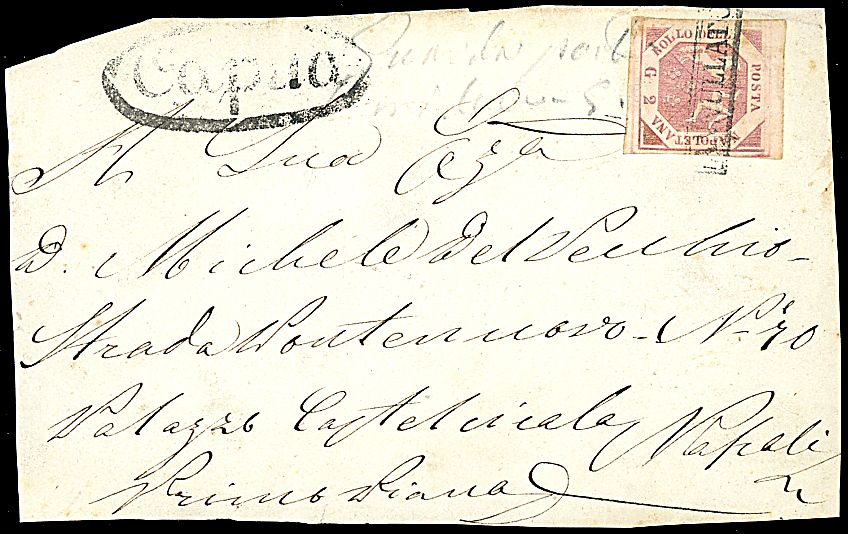 Capua
BOLLO DELLA
POSTA
NAPOLETANA
G 2
ANNULLATO
A Sua Ecza
D. Michele Del Vecchio
Strada Pontenuovo - No. 40
Palazzo Castelcicala Napoli
Primo Piano